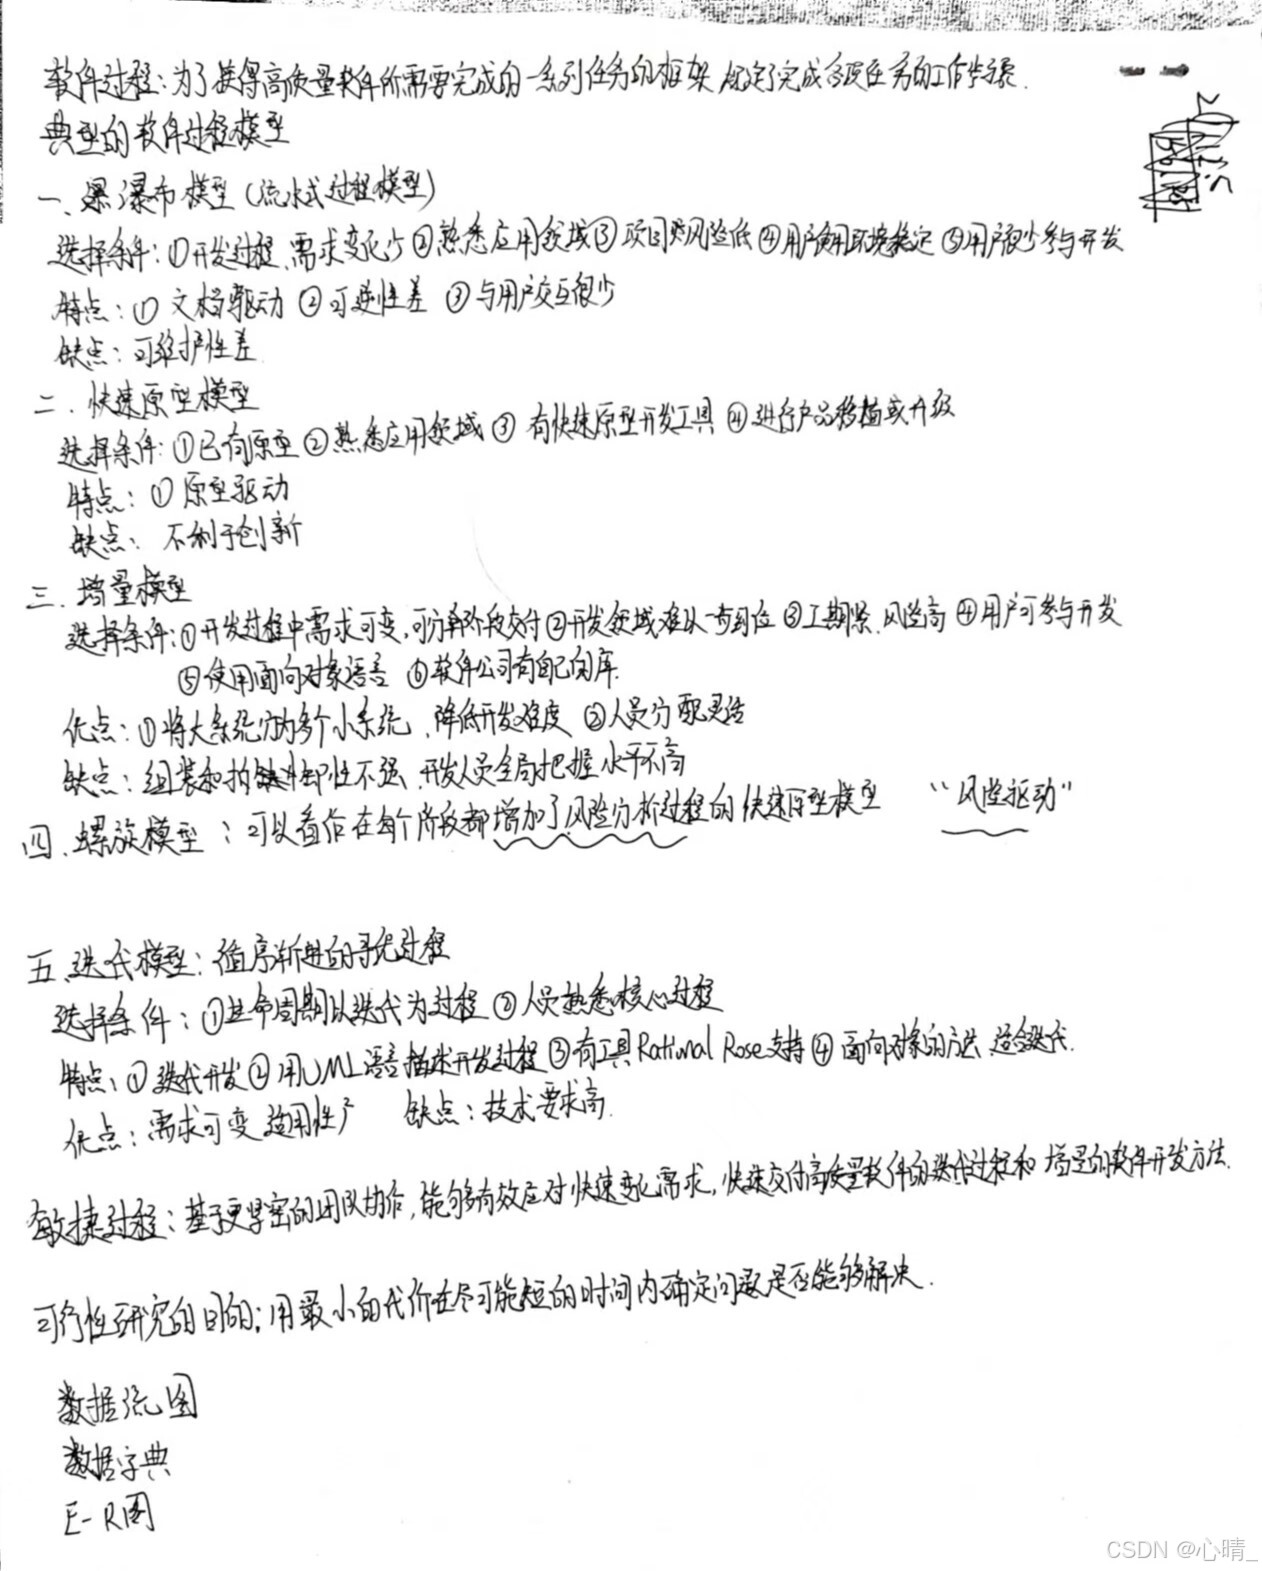 软件过程：为了获得高质量软件所需要完成的一系列任务的框架，规定了完成各项任务的工作步骤.
典型的软件过程模型
一、瀑布模型（流水式过程模型）
选择条件：①开发过程、需求变化少②熟悉应用领域③项目风险低④用户使用环境稳定⑤用户很少参与开发
特点：① 文档驱动 ②可逆性差 ③与用户交互很少
缺点：可维护性差
二．快速原型模型
选择条件：①已有原型②熟悉应用领域③ 有快速原型开发工具 ④进行产品移植或升级
特点：①原型驱动
缺点：不利于创新
三．增量模型
选择条件：①开发过程中需求可变，可分阶段交付②开发领域难以一步到位③工期紧、风险高④用户可参与开发
⑤使用面向对象语言 ⑥软件公司有自己的库.
优点：①将大系统分为多个小系统，降低开发难度 ②人员分配灵活
缺点：组装和拆卸性不强、开发人员全局把握水平不高
四、螺旋模型：可以看作在每个阶段都增加了风险分析过程的快速原型模型 “风险驱动”
五、迭代模型：循序渐进的寻优过程
选择条件：①生命周期以迭代为过程 ②人员熟悉核心过程
特点：①迭代开发②用UML语言描述开发过程③有工具Rational Rose支持④面向对象的方法 适合迭代.
优点：需求可变 适用性广 缺点：技术要求高.
敏捷过程：基于更紧密的团队协作，能够有效应对快速变化需求，快速交付高质量软件的迭代过程和增量的软件开发方法.
可行性研究的目的：用最小的代价在尽可能短的时间内确定问题是否能够解决.
数据流图
数据字典
E-R图
CSDN @心晴_